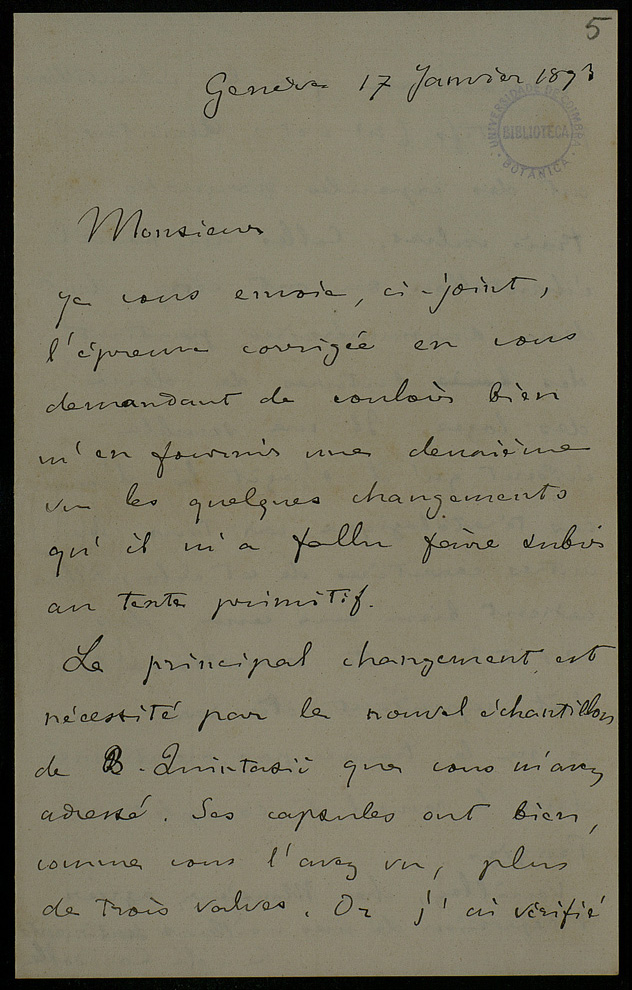 5
Genève 17 Janvier 1893
UNIVERSIDADE DE COIMBRA
BIBLIOTECA
BOTANICA
Monsieur
Je vous envoie, ci-joint,
l'épreuve corrigée en vous
demandant de vouloir bien
m'en fournir une deuxième
vu les quelques changements
qu'il m'a fallu faire subir
au texte primitif.
Le principal changement est
nécessité par le nouvel échantillon
de B. Quintasii que vous m'avez
adressé. Ses capsules ont bien,
comme vous l'avez vu, plus
de trois valves. Or j'ai vérifié